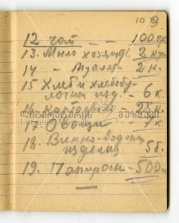 10
12 чай - - 100 гр.
13. Мыло хозяйств. 2 кус
14 - " - Туалетн. - 2 к.
15 Хлеб и хлебобу-
лочн. изд. - 6 к
16 Картофель - 25 к.
17. Овощи - 7 к
18. Винно-водочн.
изделия - 5 б.
19. Папиросы - 500 шт